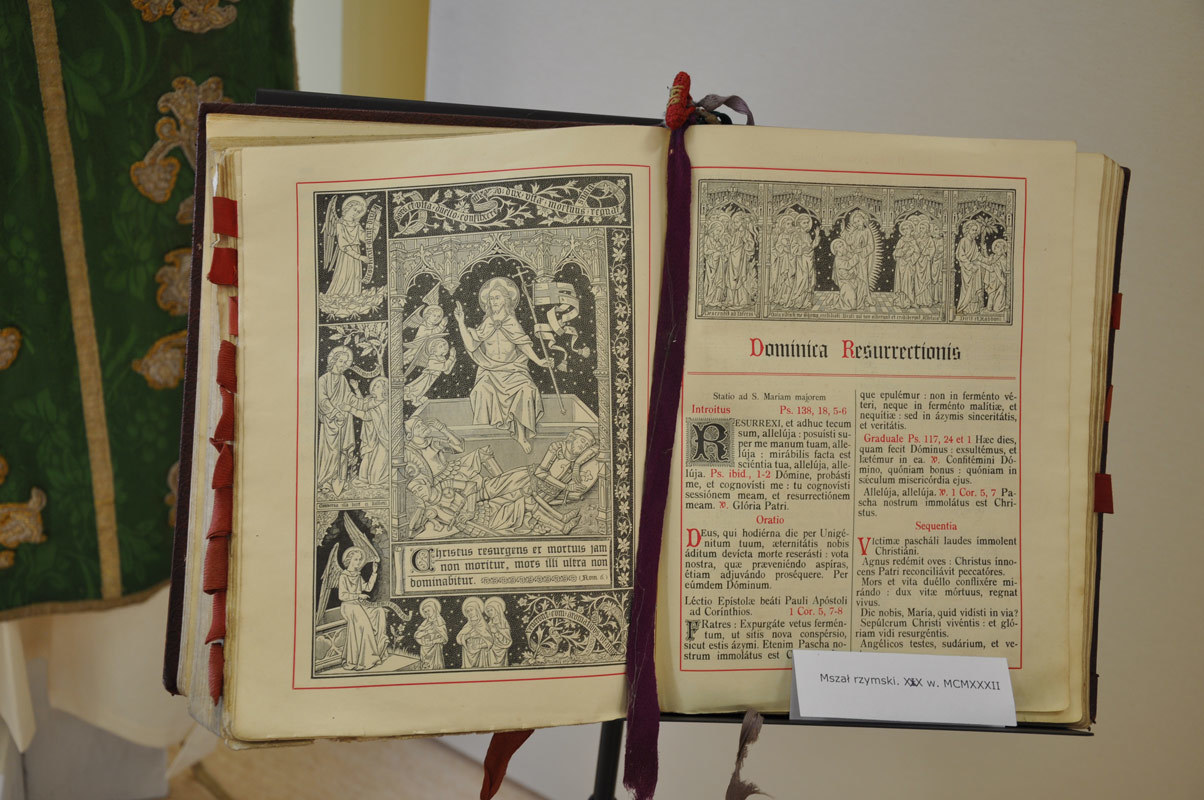 et vita duello conflixere
dux vitæ mortuus regnat
Christus resurgens et mortuis jam
non moritur, mors illi ultra non
dominabitur.
Dominica Resurrectionis
Statio ad S. Mariam majorem
Introitus Ps. 138, 18, 5-6
RESURREXI, et adhuc tecum
sum, allelúja : posuísti su-
per me manum tuam, alle-
lúja : mirábilis facta est
sciéntia tua, allelúja, alle-
lúja. Ps. ibid., 1-2 Dómine, probásti
me, et cognovísti me : tu cognovísti
sessiónem meam, et resurrectiónem
meam. ℣. Glória Patri.
Oratio
DEus, qui hodiérna die per Unigé-
nitum tuum, æternitátis nobis
áditum devícta morte reserásti : vota
nostra, quæ præveniéndo aspíras,
étiam adjuvándo proséquere. Per
eúmdem Dóminum.
Léctio Epístolæ beáti Pauli Apóstoli
ad Corínthios. 1 Cor. 5, 7-8
FRatres : Expurgáte vetus fermén-
tum, ut sitis nova conspérsio,
sicut estis ázymi. Etenim Pascha no-
strum immolátus est
que epulémur : non in ferménto vé-
teri, neque in ferménto malítiæ, et
nequítiæ : sed in ázymis sinceritátis,
et veritátis.
Graduale Ps. 117, 24 et 1 Hæc dies,
quam fecit Dóminus : exsultémus, et
lætémur in ea. ℣. Confitémini Dó-
mino, quóniam bonus : quóniam in
sæculum misericórdia ejus.
Allelúja, allelúja. ℣. 1 Cor. 5, 7 Pa-
scha nostrum immolátus est Chri-
stus.
Sequentia
Víctimæ pascháli laudes ímmolent
Christiáni.
Agnus redémit oves : Christus ínno-
cens Patri reconciliávit peccatóres.
Mors et vita duéllo conflixére mi-
rándo : dux vitæ mórtuus, regnat
vivus.
Dic nobis, María, quid vidísti in via?
Sepúlcrum Christi vivéntis : et gló-
riam vidi resurgéntis.
Angélicos testes, sudárium, et ve-
Mszał rzymski. XIX w. MCMXXXII